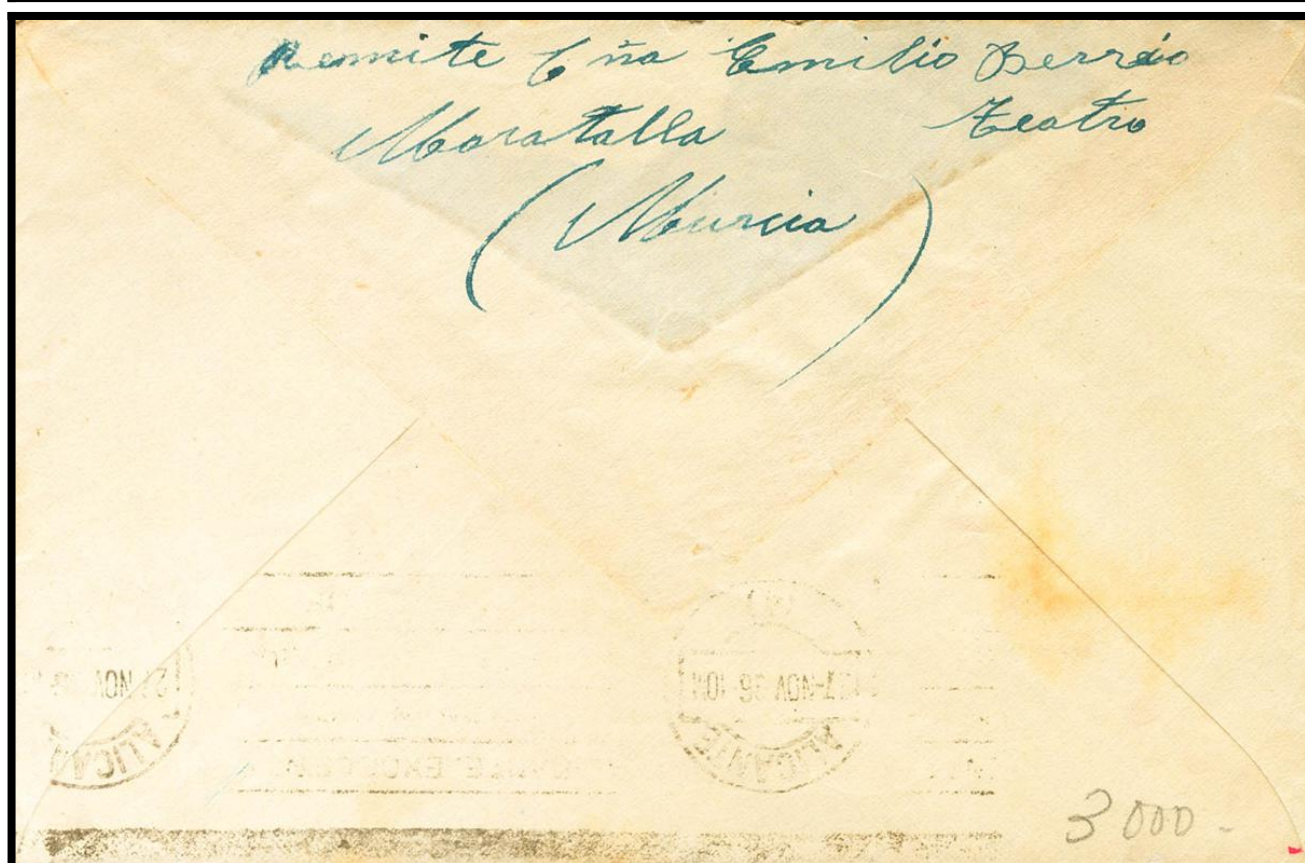 Remite Cñia Emilio Berrio
Moratalla Teatro
(Murcia)
27-NOV 36 10M
ALICANTE
27 NOV 3
ALICAN
3000-